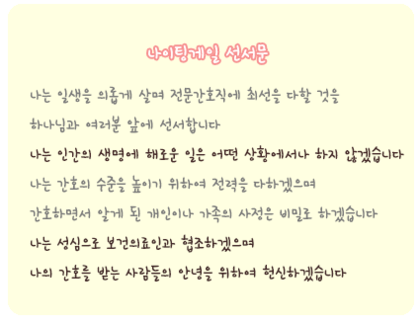 나이팅게일 선서문
나는 일생을 의롭게 살며 전문간호직에 최선을 다할 것을
하나님과 여러분 앞에 선서합니다
나는 인간의 생명에 해로운 일은 어떤 상황에서나 하지 않겠습니다
나는 간호의 수준을 높이기 위하여 전력을 다하겠으며
간호하면서 알게 된 개인이나 가족의 사정은 비밀로 하겠습니다
나는 성심으로 보건의료인과 협조하겠으며
나의 간호를 받는 사람들의 안녕을 위하여 헌신하겠습니다